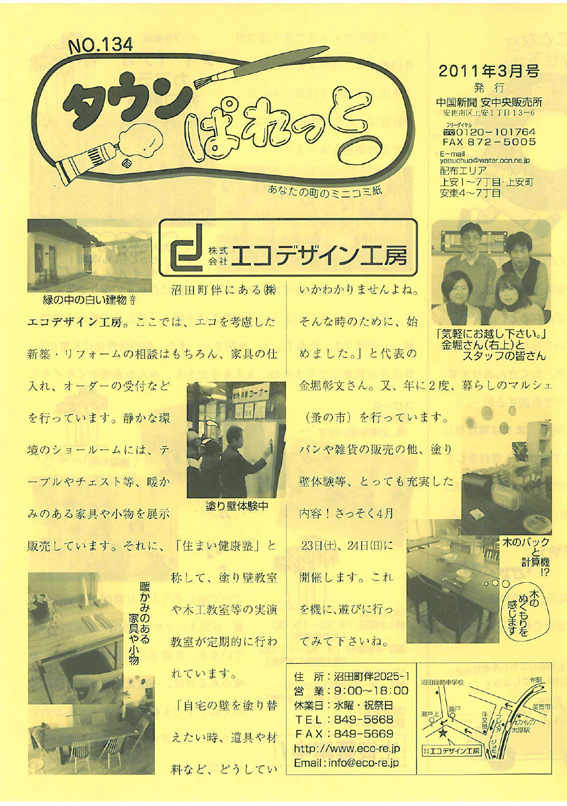 NO.134
タウン
ぱれっと
あなたの町のミニコミ紙
2011年3月号
発行
中国新聞 安中央販売所
安佐南区上安1丁目13-6
フリーダイヤル
0120-101764
FAX 872-5005
E-mail
yasuchuo@water.ocn.ne.jp
配布エリア
上安1~7丁目・上安町
安東4~7丁目
株式会社 エコデザイン工房
緑の中の白い建物
沼田町伴にある㈱
エコデザイン工房。ここでは、エコを考慮した
新築・リフォームの相談はもちろん、家具の仕
入れ、オーダーの受付など
を行っています。静かな環
境のショールームには、テ
ーブルやチェスト等、暖か
みのある家具や小物を展示
販売しています。それに、
「住まい健康塾」と
称して、塗り壁教室
や木工教室等の実演
教室が定期的に行わ
れています。
「自宅の壁を塗り替
えたい時、道具や材
料など、どうしてい
いかわかりませんよね。
そんな時のために、始
めました。」と代表の
金堀彰文さん。又、年に２度、暮らしのマルシェ
(蚤の市)を行っています。
パンや雑貨の販売の他、塗り
壁体験等、とっても充実した
内容！さっそく4月
23日㈯、24日㈰に
開催します。これ
を機に、遊びに行っ
てみて下さいね。
「気軽にお越し下さい。」
金堀さん(右上)と
スタッフの皆さん
塗り壁体験中
木のバック
と
計算機!?
木の
ぬくもりを
感じます
暖かみのある
家具や小物
住 所：沼田町伴2025-1
営 業：9:00～18:00
休業日：水曜・祝祭日
TEL：849-5668
FAX：849-5669
http://www.eco-re.jp
Email:info@eco-re.jp
沼田自動車学校
瀬戸
瀬戸上
大原駅
エコデザイン工房